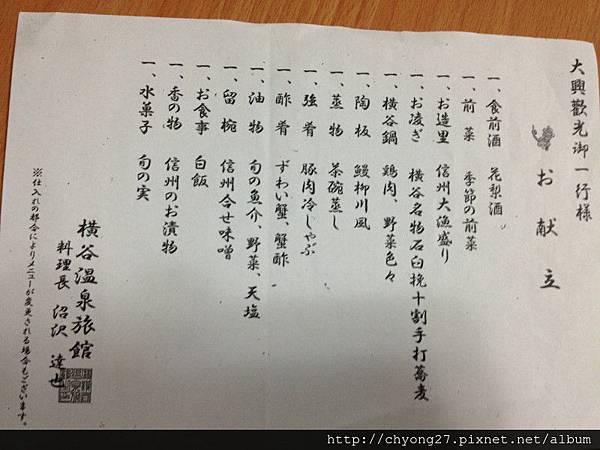 大興歡光御一行様
お献立
一、食前酒 花梨酒
一、前菜 季節の前菜
一、お造里 信州大漁盛り
一、お凌ぎ 横谷名物石臼挽十割手打蕎麦
一、横谷鍋 鶏肉、野菜色々
一、陶板 鰻柳川風
一、蒸物 茶碗蒸し
一、強肴 豚肉冷しゃぶ
一、酢肴 ずわい蟹、蟹酢
一、油物 旬の魚介、野菜、天塩
一、留椀 信州合せ味噌
一、お食事 白飯
一、香の物 信州のお漬物
一、水菓子 旬の実
横谷温泉旅館
料理長 沼沢 達也
※仕入れの都合によりメニューが変更される場合もございます。
http://chyong27.pixnet.net/album